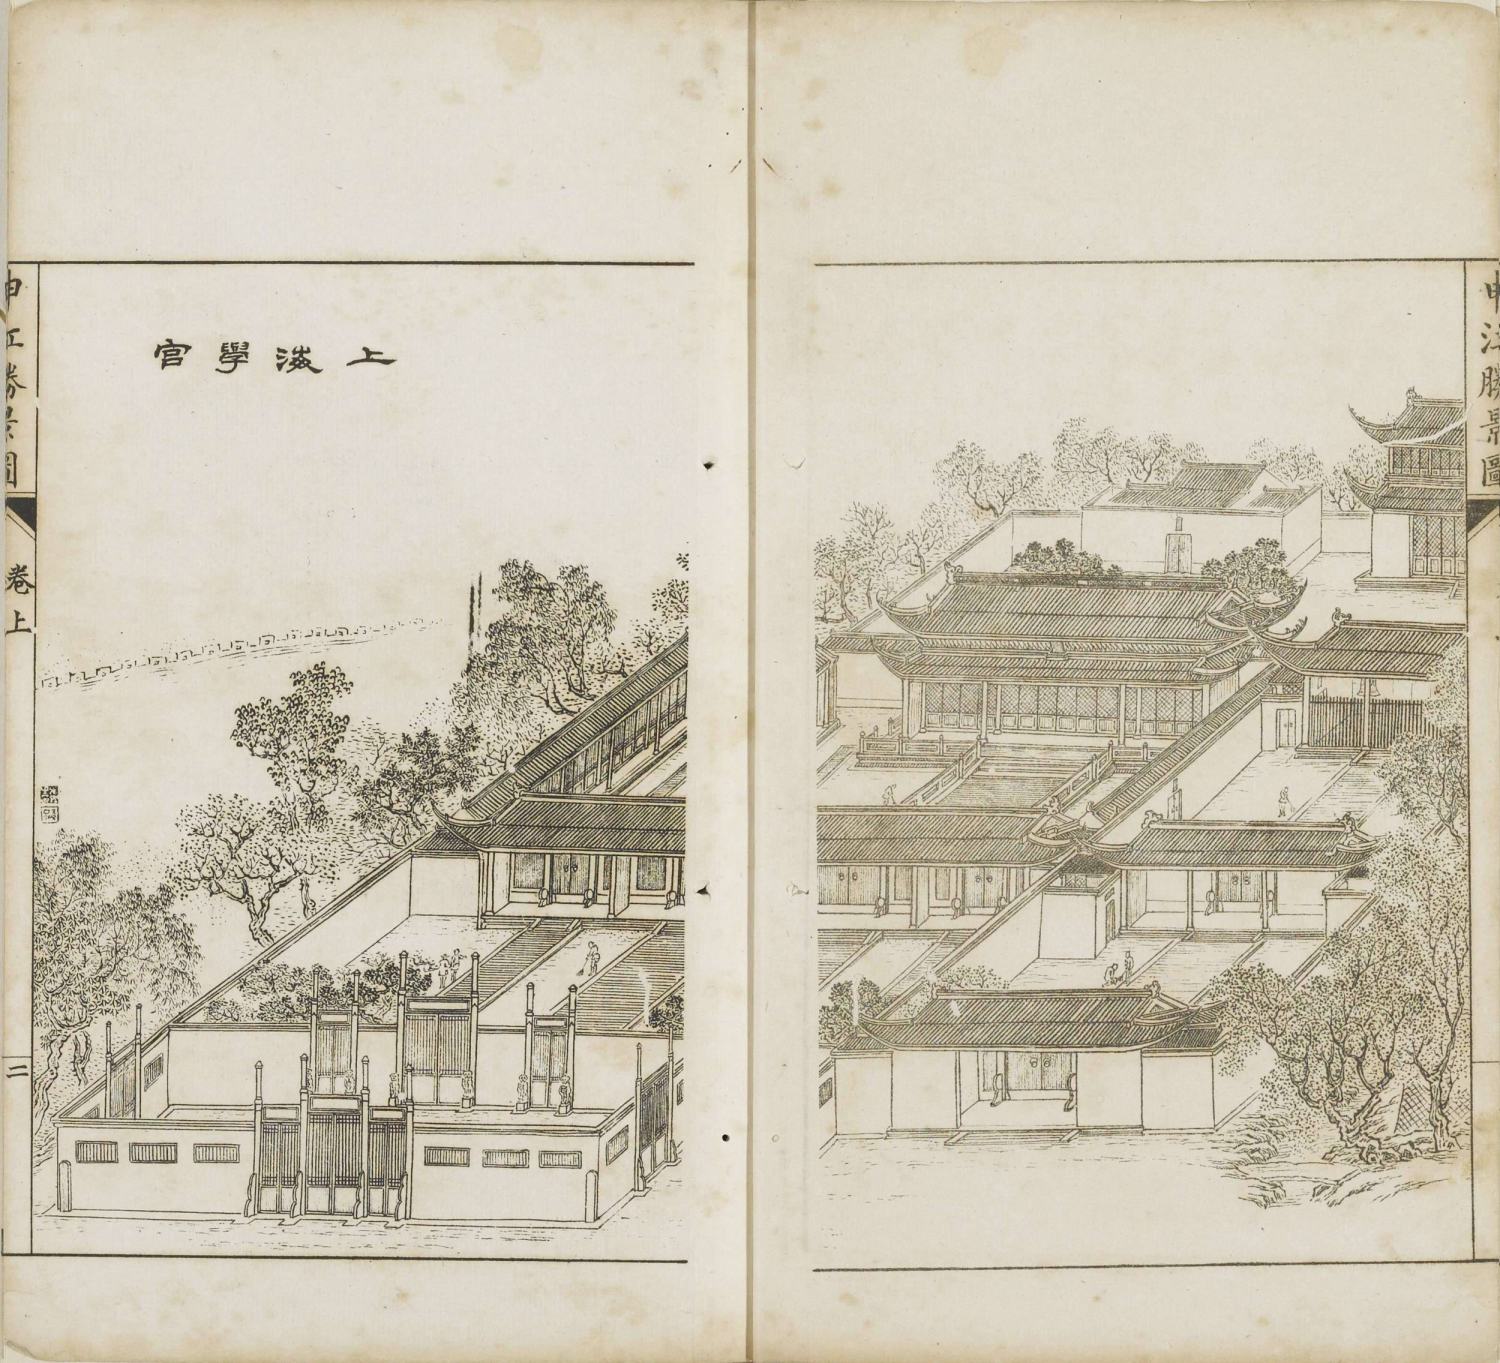 申江勝景圖
上海學官
申江勝景圖
卷上
二